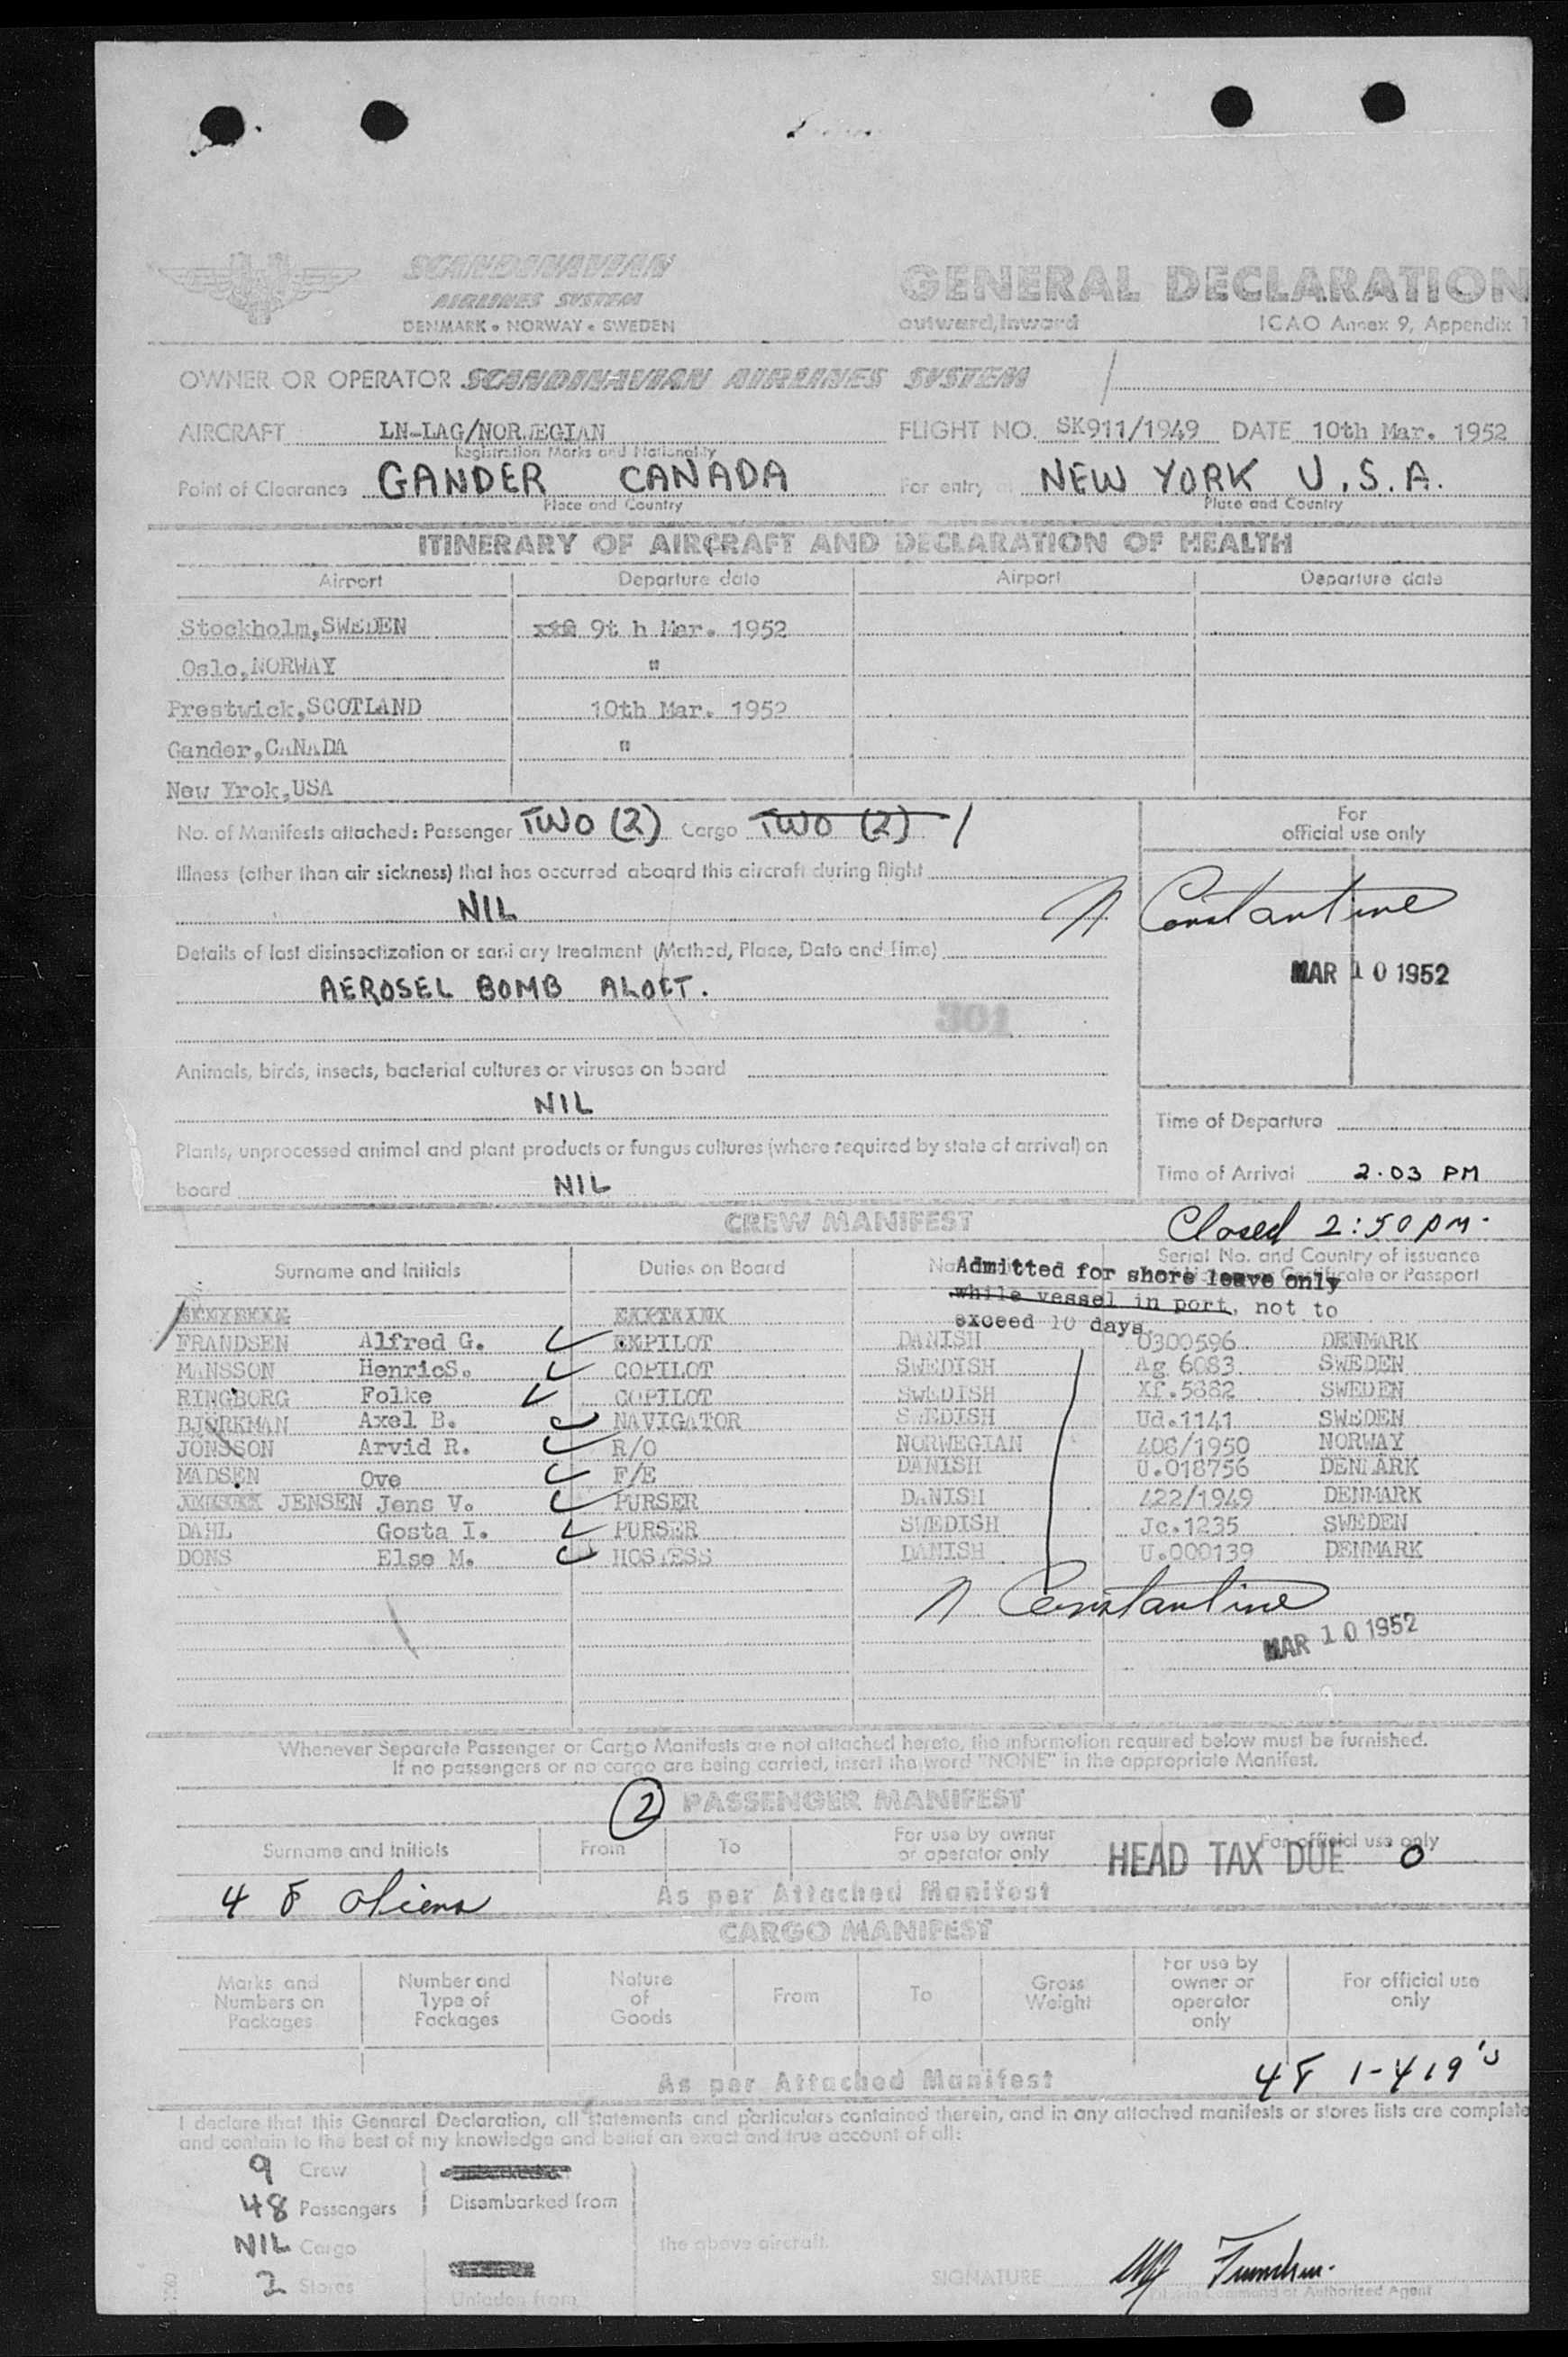 SCANDINAVIAN
AIRLINES SYSTEM
DENMARK • NORWAY • SWEDEN
GENERAL DECLARATION
outward, Inward ICAO Annex 9, Appendix 1
OWNER OR OPERATOR SCANDINAVIAN AIRLINES SYSTEM
AIRCRAFT LN-LAG/NORWEGIAN FLIGHT NO. SK911/1949 DATE 10th Mar. 1952
Registration Marks and Nationality
Point of Clearance GANDER CANADA For entry at NEW YORK U.S.A.
Place and Country Place and Country
ITINERARY OF AIRCRAFT AND DECLARATION OF HEALTH
Airport Departure date Airport Departure date
Stockholm,SWEDEN 9t h Mar. 1952
Oslo,NORWAY "
Prestwick,SCOTLAND 10th Mar. 1952
Gander,CANADA "
New Yrok,USA
No. of Manifests attached: Passenger TWO (2) Cargo TWO (2) 1
For
official use only
Illness (other than air sickness) that has occurred aboard this aircraft during flight
NIL
N Constantine
MAR 10 1952
Details of last disinsectization or sanitary treatment (Method, Place, Date and Time)
AEROSEL BOMB ALOFT.
301
Animals, birds, insects, bacterial cultures or viruses on board
NIL
Time of Departure
Plants, unprocessed animal and plant products or fungus cultures (where required by state of arrival) on
board NIL
Time of Arrival 2.03 PM
CREW MANIFEST
Closed 2:50 PM.
Surname and Initials Duties on Board Serial No. and Country of issuance
Certificate or Passport
Admitted for shore leave only
while vessel in port, not to
exceed 10 days.
FRANDSEN Alfred G. PILOT DANISH 0300596 DENMARK
MANSSON HenricS. COPILOT SWEDISH Ag 6083 SWEDEN
RINGBORG Folke COPILOT SWEDISH Xf.5882 SWEDEN
BJORKMAN Axel B. NAVIGATOR SWEDISH Ud.1141 SWEDEN
JONSSON Arvid R. R/O NORWEGIAN 408/1950 NORWAY
MADSEN Ove F/E DANISH U.018756 DENMARK
JENSEN Jens V. PURSER DANISH 422/1949 DENMARK
DAHL Gosta I. PURSER SWEDISH Jc.1235 SWEDEN
DONS Else M. HOSTESS DANISH U.000139 DENMARK
N Constantine
MAR 10 1952
Whenever Separate Passenger or Cargo Manifests are not attached hereto, the information required below must be furnished.
If no passengers or no cargo are being carried, insert the word "NONE" in the appropriate Manifest.
2 PASSENGER MANIFEST
Surname and Initials From To For use by owner
or operator only For official use only
HEAD TAX DUE 0
48 aliens As per Attached Manifest
CARGO MANIFEST
Marks and
Numbers on
Packages
Number and
Type of
Packages
Nature
of
Goods
From
To
Gross
Weight
For use by
owner or
operator
only
For official use
only
As per Attached Manifest 48 1-419's
I declare that this General Declaration, all statements and particulars contained therein, and in any attached manifests or stores lists are complete
and contain to the best of my knowledge and belief an exact and true account of all:
9 Crew
48 Passengers Disembarked from
NIL Cargo the above aircraft.
2 Stores
Unladen from
SIGNATURE
Pilot in Command or Authorized Agent